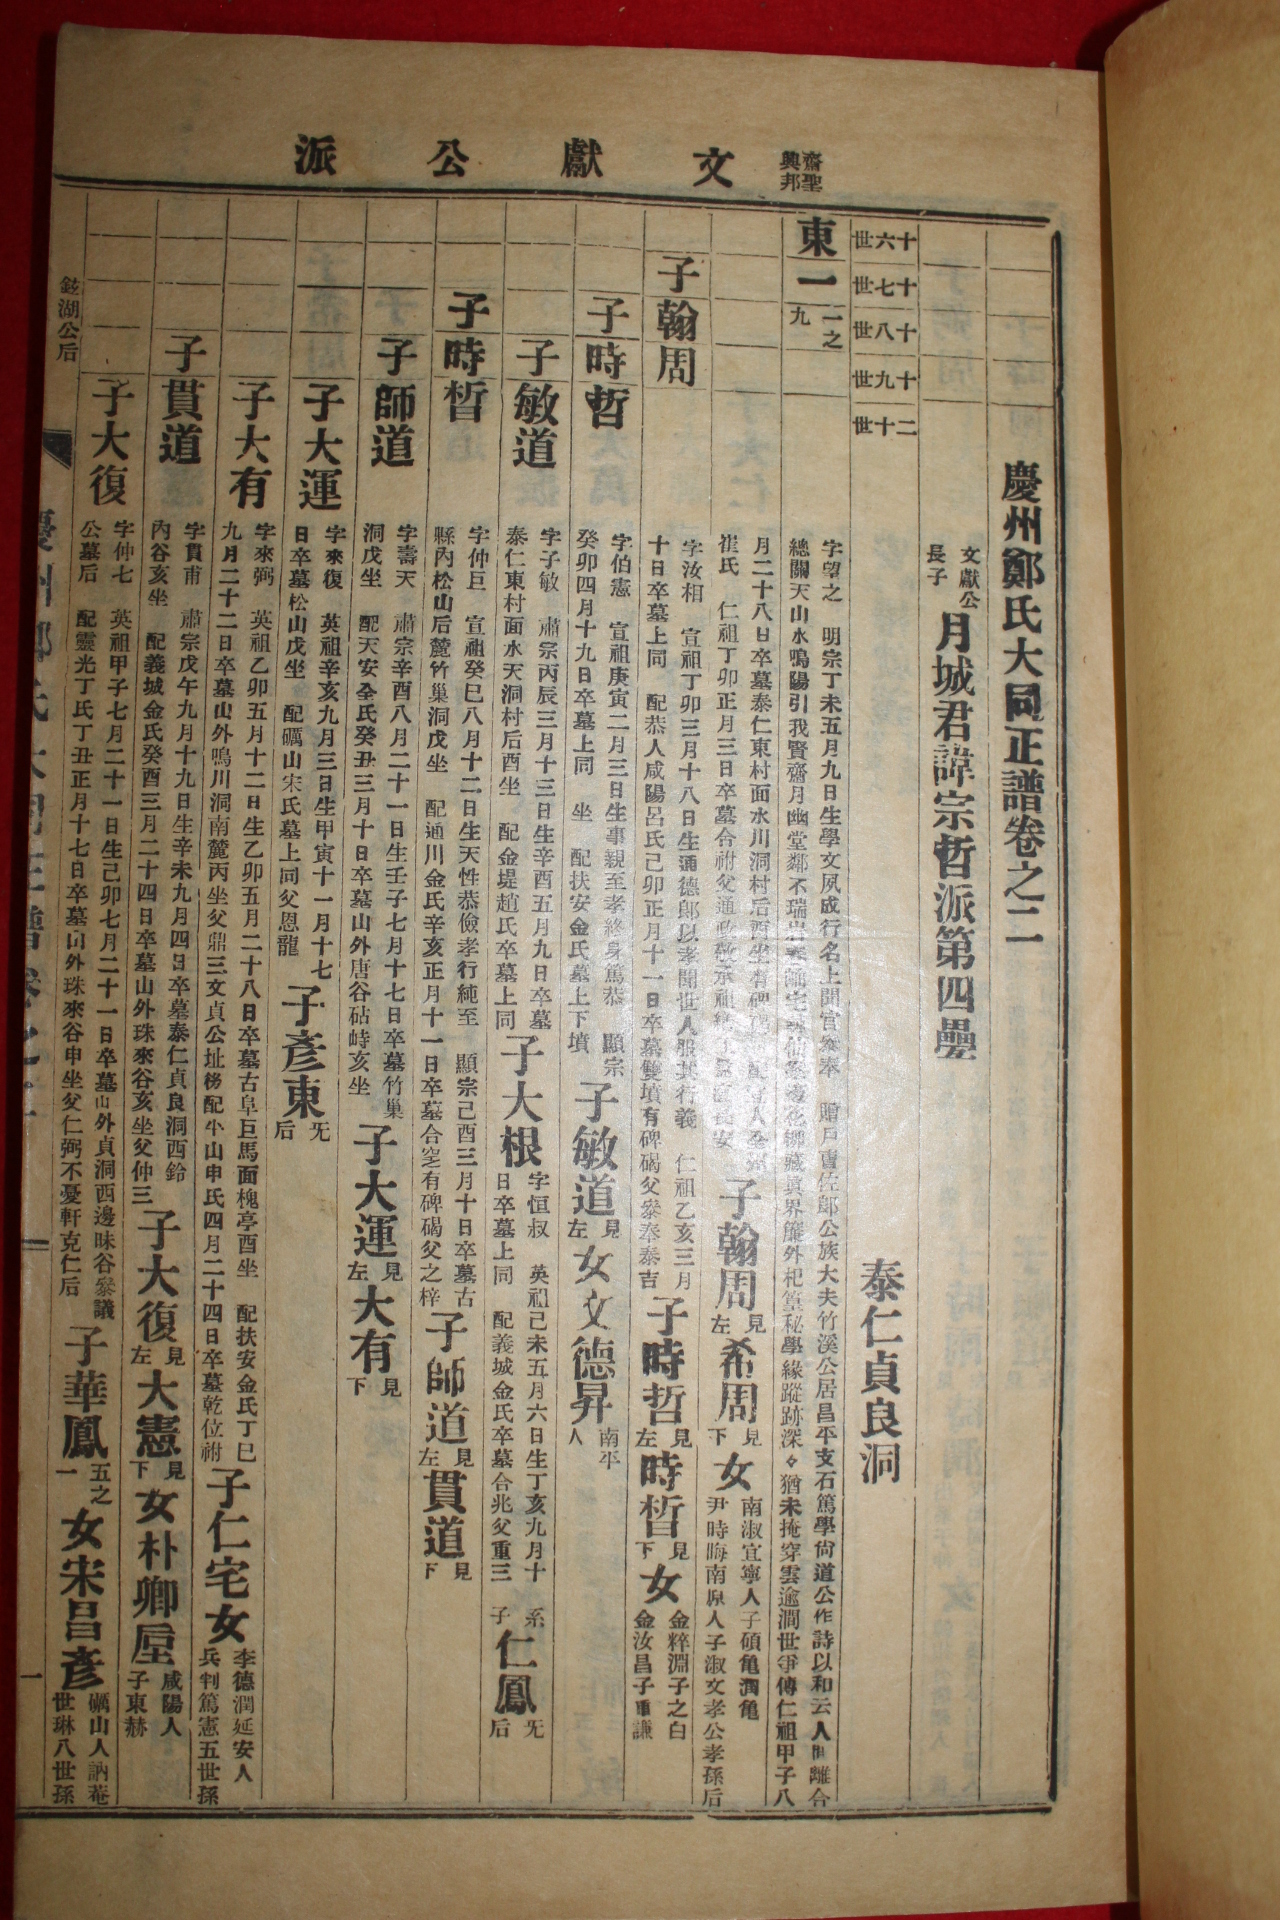 文獻公派
齋聖
興邦
慶州鄭氏大同正譜卷之二
文獻公
長子
月城君諱宗哲派第四疊
十六世
十七世
十八世
十九世
二十世
泰仁貞良洞
東一
二之
九
字望之 明宗丁未五月九日生學文夙成行名上聞官參奉 贈戶曹佐郞公族大夫竹溪公居昌平支石篤學尙道公作詩以和云人間離合
月二十八日卒墓泰仁東村面水川洞村后酉坐有碑
崔氏 仁祖丁卯正月三日卒墓合祔父通政敬承祖
子翰周
見左
希周
見下
女
南淑宜寧人子碩龜潤龜
尹時晦南原人子淑文孝公孝孫后
子翰周
字汝相 宣祖丁卯三月十八日生通德郞以孝聞世人服其行義 仁祖乙亥三月
十日卒墓上同 配恭人咸陽呂氏己卯正月十一日卒墓雙墳有碑碣父參奉泰吉
子時哲
見左
時晳
見下
女
金粹淵子之白
金汝昌子重謙
子時哲
字伯憲 宣祖庚寅二月三日生事親至孝終身篤恭 顯宗
癸卯四月十九日卒墓上同 坐 配扶安金氏墓上下墳
子敏道
見左
女文德昇
南平
人
子敏道
字子敏 肅宗丙辰三月十三日生辛酉五月九日卒墓
泰仁東村面水天洞村后酉坐 配金堤趙氏卒墓上同
子大根
字恒叔 英祖己未五月六日生丁亥九月十
日卒墓上同 配義城金氏卒墓合兆父重三
系
子
仁鳳
旡
后
子時晳
字仲巨 宣祖癸巳八月十二日生天性恭儉孝行純至 顯宗己酉三月十日卒墓古
縣內松山后麓竹巢洞戊坐 配通川金氏辛亥正月十一日卒墓合窆有碑碣父之梓
子師道
見左
貫道
見下
子師道
字壽天 肅宗辛酉八月二十一日生壬子七月十七日卒墓竹巢
洞戊坐 配天安全氏癸丑三月十日卒墓山外唐谷砧峙亥坐
子大運
見左
大有
見下
子大運
字來復 英祖辛亥九月三日生甲寅十一月十七
日卒墓松山戊坐 配礪山宋氏墓上同父恩龍
子彥東
旡
后
子大有
字來弼 英祖乙卯五月十二日生乙卯五月二十八日卒墓古阜巨馬面槐亭酉坐 配扶安金氏丁巳
九月二十二日卒墓山外鳴川洞南麓丙坐父鼎三文貞公址後配平山申氏四月二十四日卒墓乾位祔
子仁宅
女
李德潤延安人
兵判篤憲五世孫
子貫道
字貫甫 肅宗戊午九月十九日生辛未九月四日卒墓泰仁貞良洞西鈴
內谷亥坐 配義城金氏癸酉三月二十四日卒墓山外珠來谷亥坐父仲三
子大復
見左
大憲
見下
女朴卿垕
咸陽人
子東赫
子大復
字仲七 英祖甲子七月二十一日生己卯七月二十一日卒墓山外貞洞西邊昧谷參議
公墓后 配靈光丁氏丁丑正月十七日卒墓山外珠來谷申坐父仁弼不憂軒克仁后
子華鳳
五之
一
女宋昌彥
礪山人訥菴
世琳八世孫
鈜湖公后
慶州鄭氏大同正譜卷之二
一